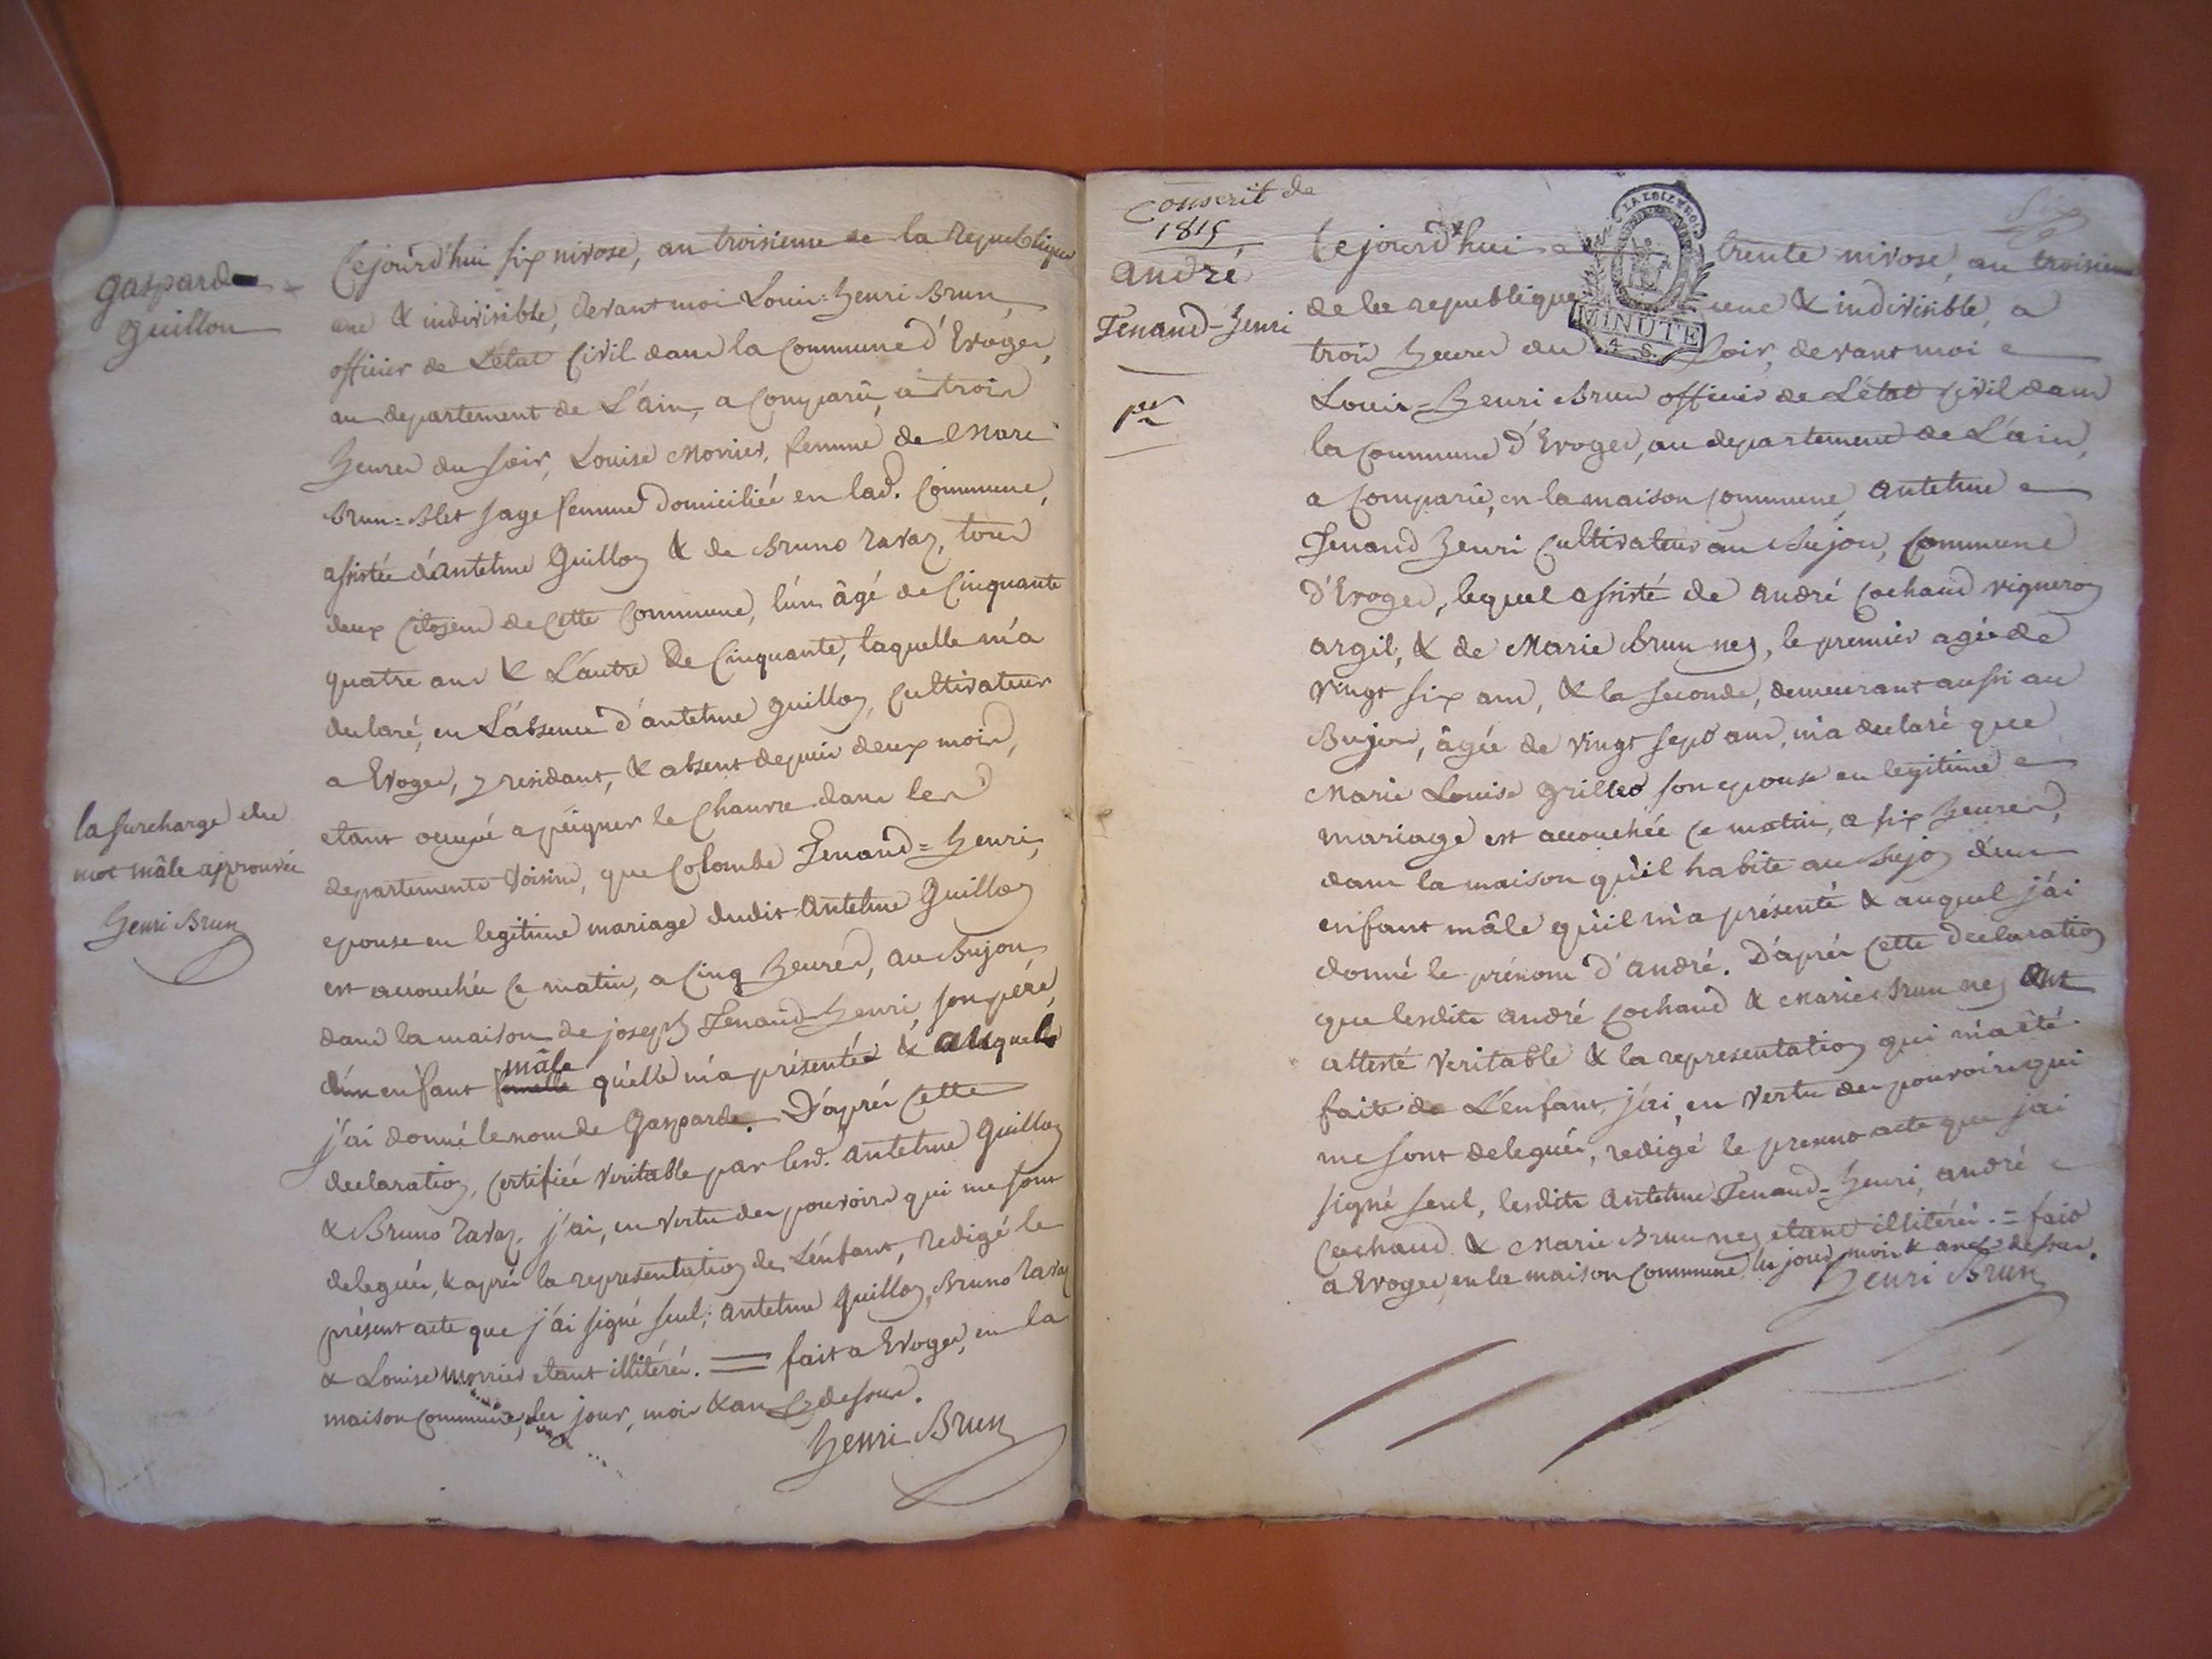 Gaspard
Guillon
Cejourd'hui six nivose, an troisieme de la republique
une & indivisible, devant moi Louis-henri Brun
officier de L'état Civil dans la Commune d'Evoges,
au departement de L'ain, a Comparû, a trois
heures du soir, Louise Monier, femme de Marc
Brun-Blet sage femme domiciliée en lad. Commune,
assistée d'antelme Guillon & de Bruno Ravaz, tous
deux citoyens de cette Commune, l'un âgé de Cinquante
quatre ans & L'autre de Cinquante, laquelle m'a
declaré, en L'absence d'antelme Guillon, Cultivateur
a Evoges, y residant, & absent depuis deux mois,
etant occupé a peigner le Chanvre dans les
departements voisins, que Colombe Tenand=henri,
epouse en legitime mariage dudit Antelme Guillon
est accouchée ce matin, a Cinq heures, au Bujon,
dans la maison de joseph Tenand henri, son pére,
mâle
d'un enfant femelle qu'elle m'a présentée & auquel
j'ai donné le nom de Gaspard. D'aprés Cette
declaration, Certifiée Veritable par lesd. Antelme Guillon
& Bruno Ravaz. j'ai, en vertu des pouvoirs qui me sont
delegués, & aprés la representation de L'enfant, redigé le
présent acte que j'ai signé seul; antelme Guillon, Bruno Ravaz
& Louise Monier etant illitérés. = fait a Evoges, en la
maison Commune, les jour, mois & an Cy dessus.
henri Brun
la surcharge du
mot mâle approuvée
henri Brun
Conscrit de
1815
André
Tenand-henri
1er
Six
LA LOI LE ROI
MINUTE
4 S.
Cejourd'hui trente nivose, an troisieme
de la republique une & indivisible, a
trois heures du soir, devant moi
Louis-henri Brun officier de L'état civil dans
la Commune d'Evoges, au departement de L'ain,
a Comparû, en la maison Commune, Antelme
Tenand henri Cultivateur au Bujon, Commune
d'Evoges, lequel assisté de André Cochand vigneron
argil, & de Marie Brun nez, le premier agé de
vingt six ans, & la seconde, demeurant aussi au
Bujon, âgée de vingt sept ans, m'a declaré que
Marie Louise Grillet son epouse en legitime
mariage est accouchée ce matin, a six heures,
dans la maison qu'il habite au Bujon d'un
enfant mâle qu'il m'a présenté & auquel j'ai
donné le prénom d'André. D'aprés Cette declaration
que lesdits André Cochand & Marie Brun nez ont
attesté Veritable & la representation qui m'a été
faite de L'enfant, j'ai, en vertu des pouvoirs qui
me sont delegués, redigé le present acte que j'ai
signé seul, lesdits Antelme Tenand-henri, andré
Cochand & Marie Brun nez etant illitérés. = fait
a Evoges, en la maison Commune, les jour, mois & an cy dessus.
henri Brun